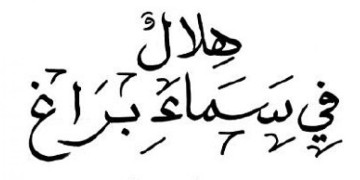 هِلالٌ
فِي سَمَاءِ بِرَاغ